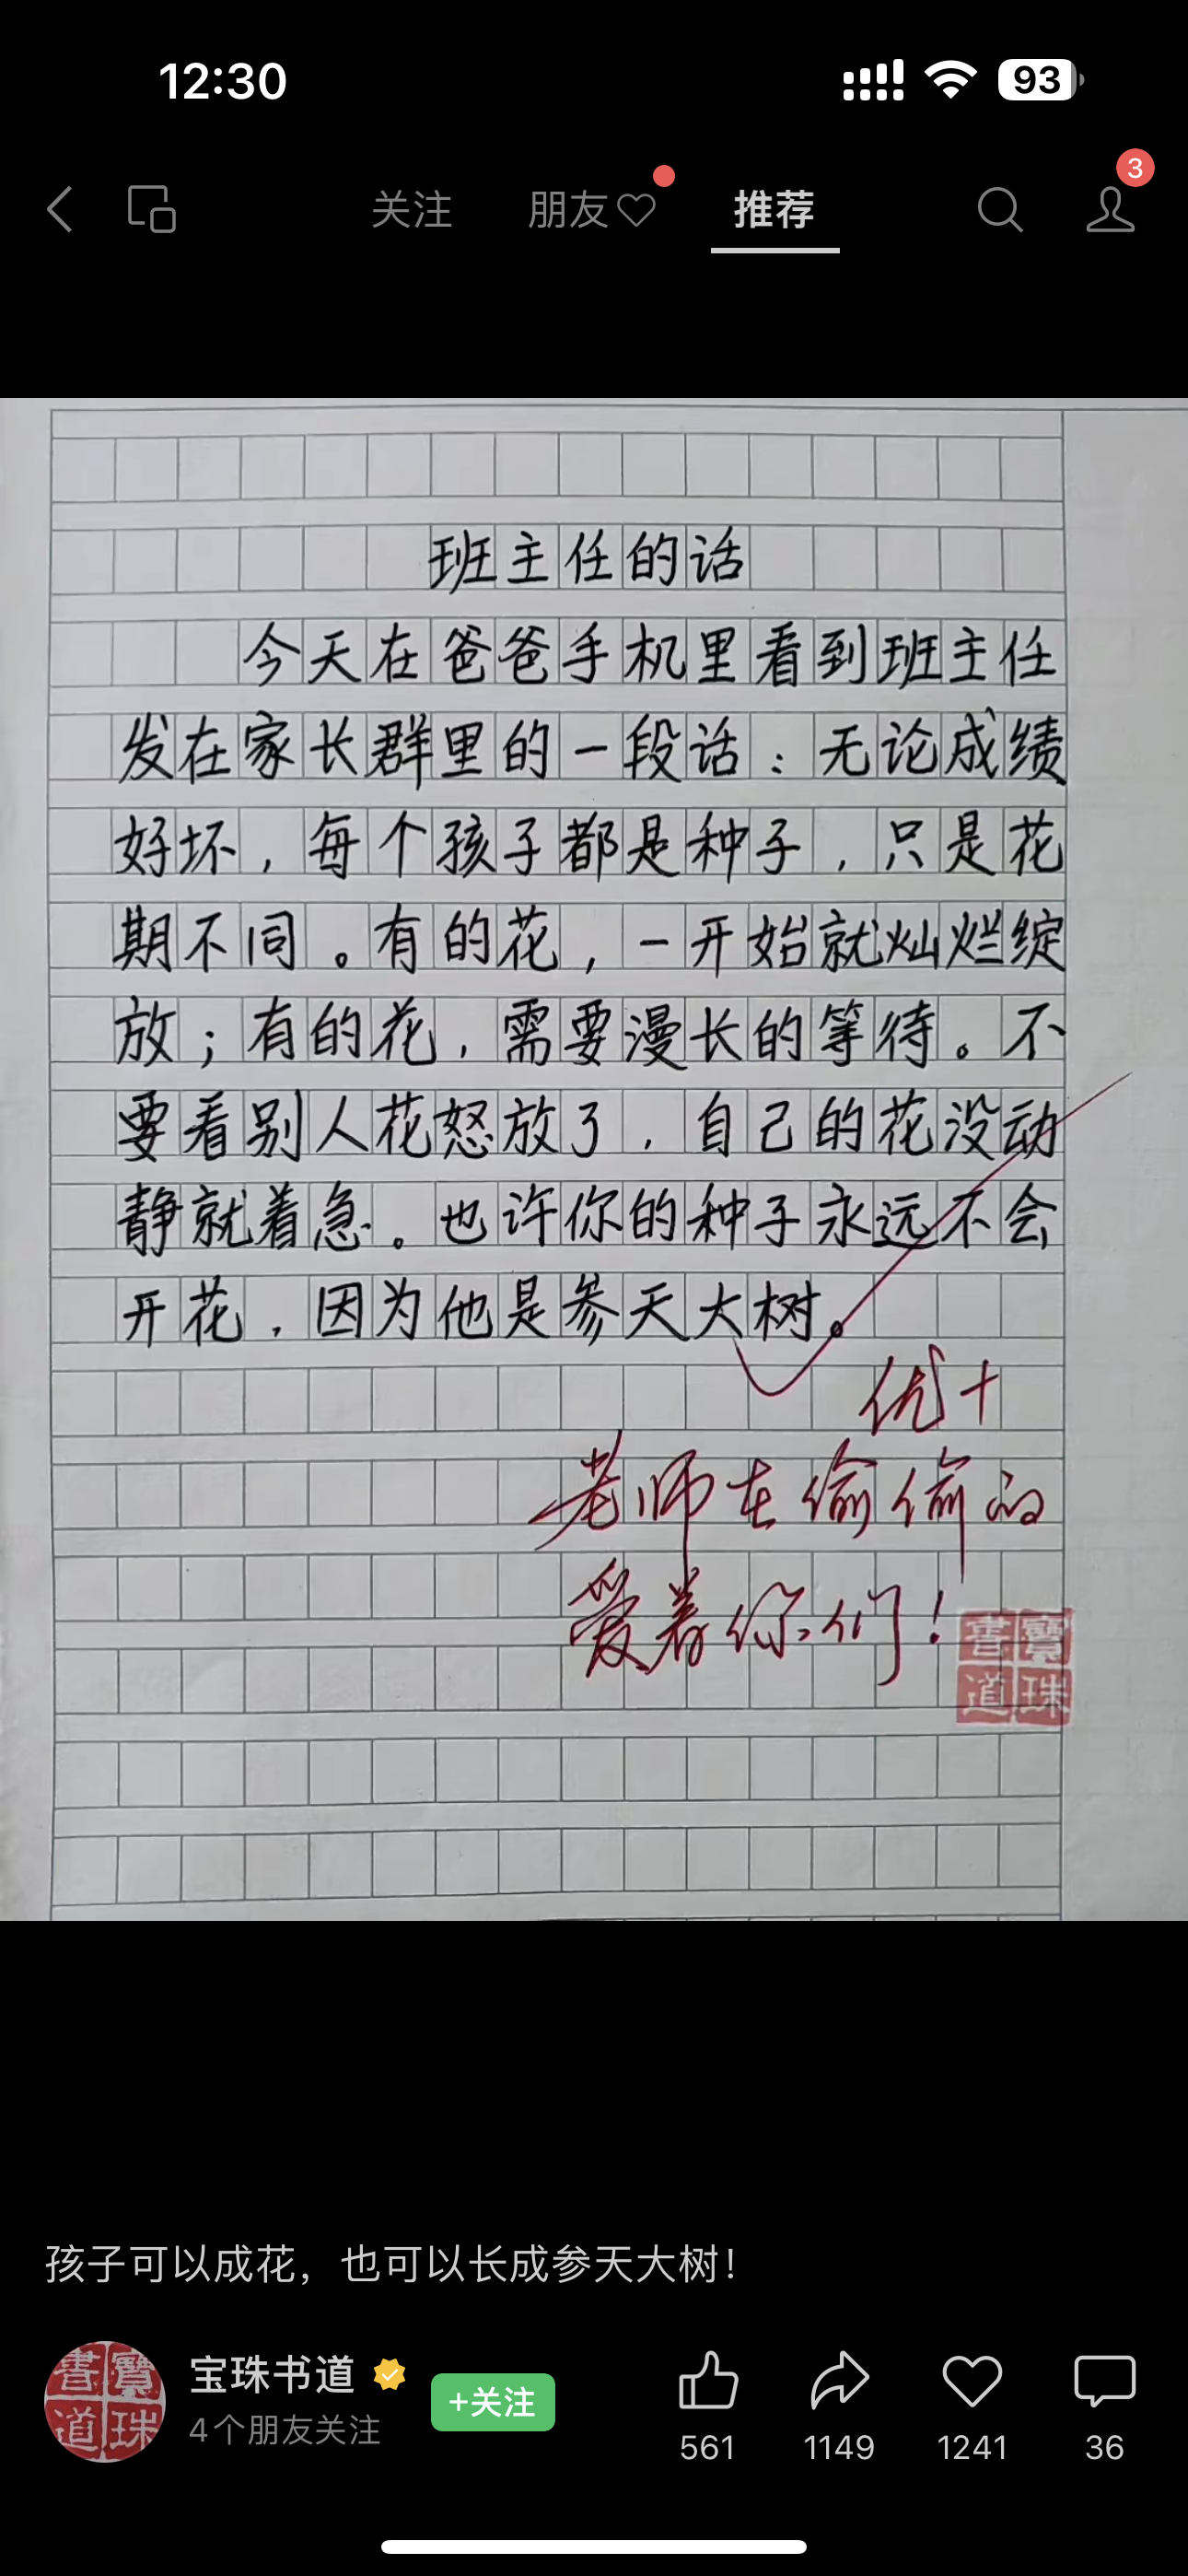 12:30
93
关注 朋友 推荐
3
班主任的话
今天在爸爸手机里看到班主任
发在家长群里的一段话：无论成绩
好坏，每个孩子都是种子，只是花
期不同。有的花，一开始就灿烂绽
放；有的花，需要漫长的等待。不
要看别人花怒放了，自己的花没动
静就着急。也许你的种子永远不会
开花，因为他是参天大树。
优+
老师在偷偷的
爱着你们！
書寶
道珠
孩子可以成花，也可以长成参天大树！
書寶
道珠
宝珠书道
4个朋友关注
+关注
561
1149
1241
36